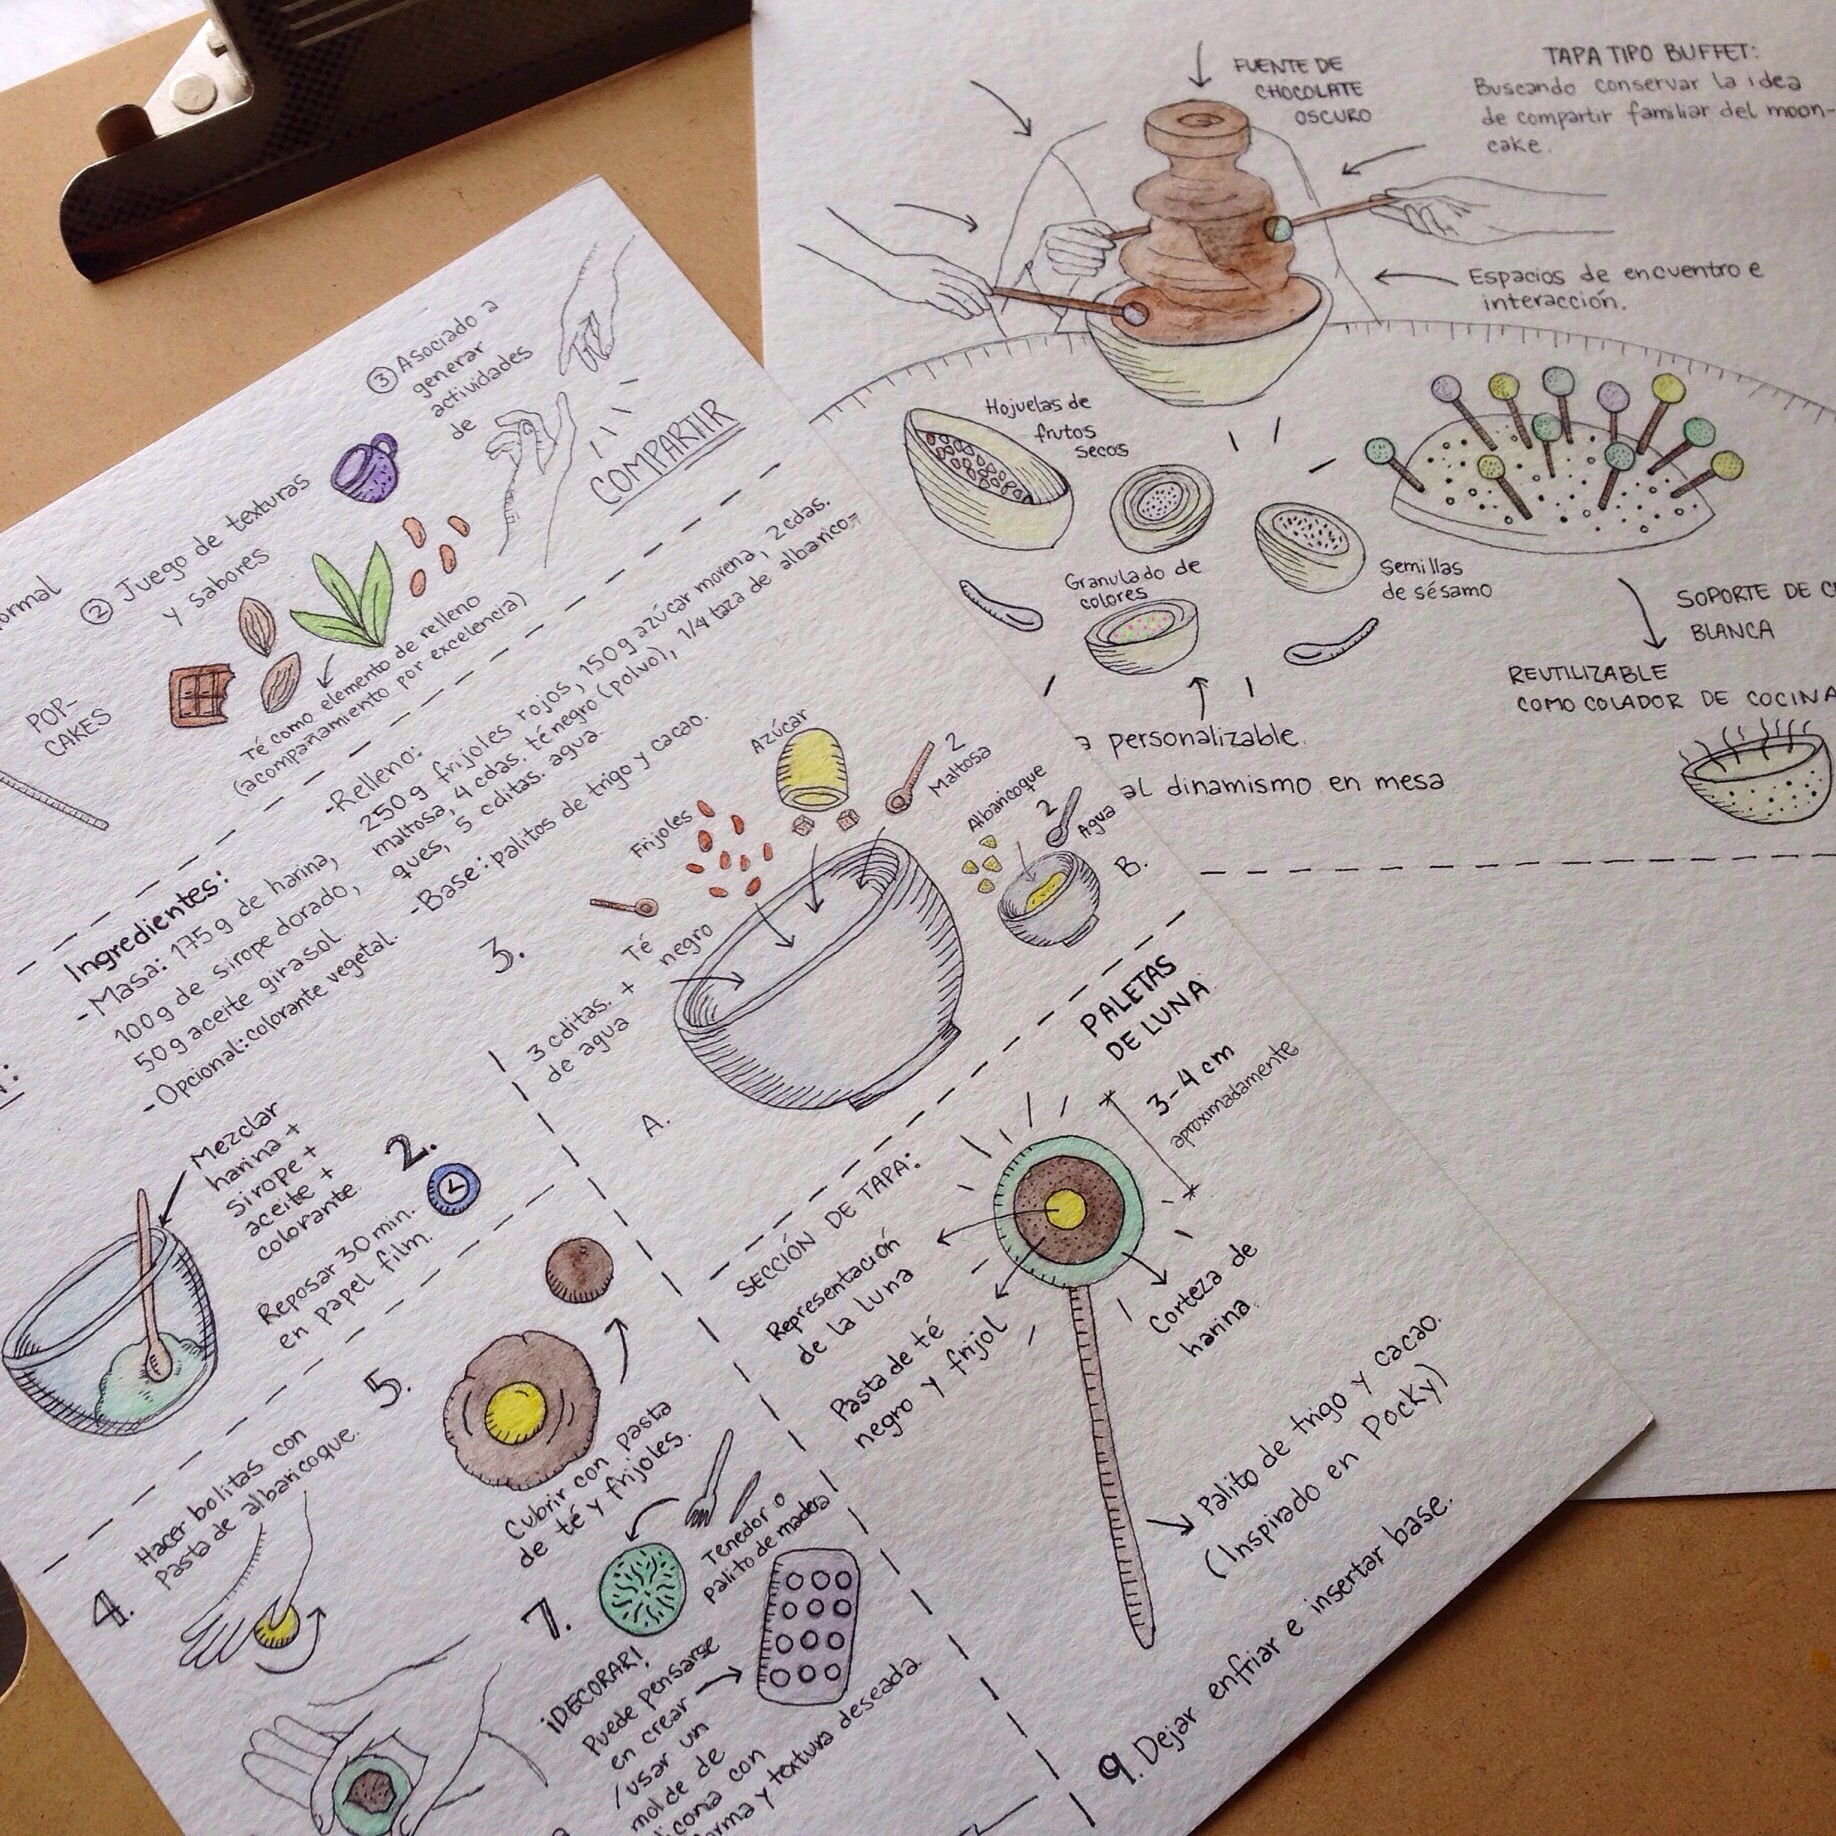 ② Juego de texturas
y sabores
③ Asociado a
generar
actividades
de
COMPARTIR
POP-
CAKES
Té como elemento de relleno
(acompañamiento por excelencia)
Ingredientes:
-Masa: 175 g de harina,
100 g de sirope dorado,
50 g aceite girasol.
-Opcional: colorante vegetal.
-Relleno:
250 g frijoles rojos, 150 g azúcar morena, 2 cdas.
maltosa, 4 cdas. té negro (polvo), 1/4 taza de albarico-
ques, 5 cditas. agua.
-Base: palitos de trigo y cacao.
Mezclar
harina +
sirope +
aceite +
colorante.
2.
Reposar 30 min.
en papel film.
3.
Frijoles
Azúcar
2
Maltosa
Té
negro
3 cditas. +
de agua
A.
Albaricoque
2
Agua
B.
4.
Hacer bolitas con
pasta de albaricoque.
5.
Cubrir con pasta
de té y frijoles.
7.
Tenedor o
palito de madera
¡DECORAR!
Puede pensarse
en crear
/usar un
molde de
icona con
forma y textura deseada.
PALETAS
DE LUNA
3-4 cm
aproximadamente
SECCIÓN DE TAPA:
Representación
de la luna
Pasta de té
negro y frijol
Corteza de
harina.
Palito de trigo y cacao.
(Inspirado en Pocky)
9. Dejar enfriar e insertar base.
FUENTE DE
CHOCOLATE
OSCURO
TAPA TIPO BUFFET:
Buscando conservar la idea
de compartir familiar del moon-
cake.
Espacios de encuentro e
interacción.
Hojuelas de
frutos
secos
Granulado de
colores
Semillas
de sésamo
SOPORTE DE
BLANCA
REUTILIZABLE
COMO COLADOR DE COCINA
a personalizable.
al dinamismo en mesa